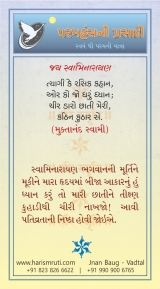 પરમહંસની પ્રસાદી
સ્વયં થી પરમની યાત્રા
જય સ્વામિનારાયણ
ત્યાગી કે રસિક કહાન,
ઓર કો જો ધરું ધ્યાન;
ચીર ડારો છાતી મેરી,
કઠિન કુઠાર સે.
(મુક્તાનંદ સ્વામી)
સ્વામિનારાયણ ભગવાનની મૂર્તિને
મૂકીને મારા હૃદયમાં બીજા આકારનું હું
ધ્યાન કરું તો મારી છાતીને તીક્ષ્ણ
કુહાડીથી ચીરી નાખજો! આવી
પતિવ્રતાની નિષ્ઠા હોવી જોઈએ.
www.harismruti.com | Jnan Baug - Vadtal
+91 823 826 6622 | +91 990 900 6765